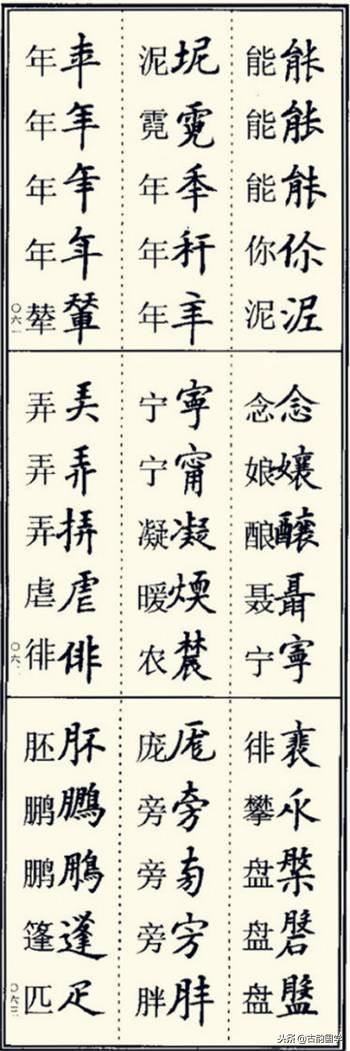 能能
能能
能能
你伱
泥泥
泥坭
霓霓
年秊
年秆
年
年
年年
年年
年年
辇輦
〇六一
念念
娘孃
酿釀
聂聶
宁寧
宁寧
宁甯
凝凝
暖煗
农農
弄
弄弄
弄挵
虐虐
徘俳
〇六
徘裵
攀
盘槃
盘磐
盘盤
庞厖
旁旁
旁
旁
胖胖
胚肧
鹏鵬
鹏鵬
篷蓬
匹疋
〇六三
头条@古韵国学